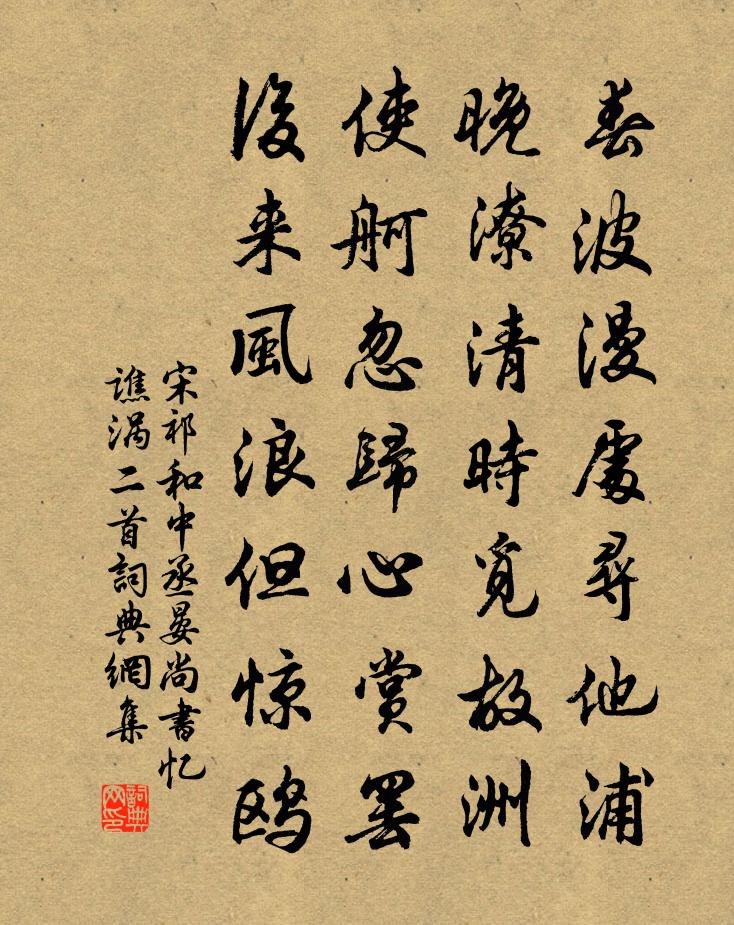 春波漫處尋他浦
晚潦清時覓故洲
使舸忽歸心賞罢
後来風浪但惊鸥
宋祁和中丞晏尚書忆
譙涡二首詞典網集
詞典网印